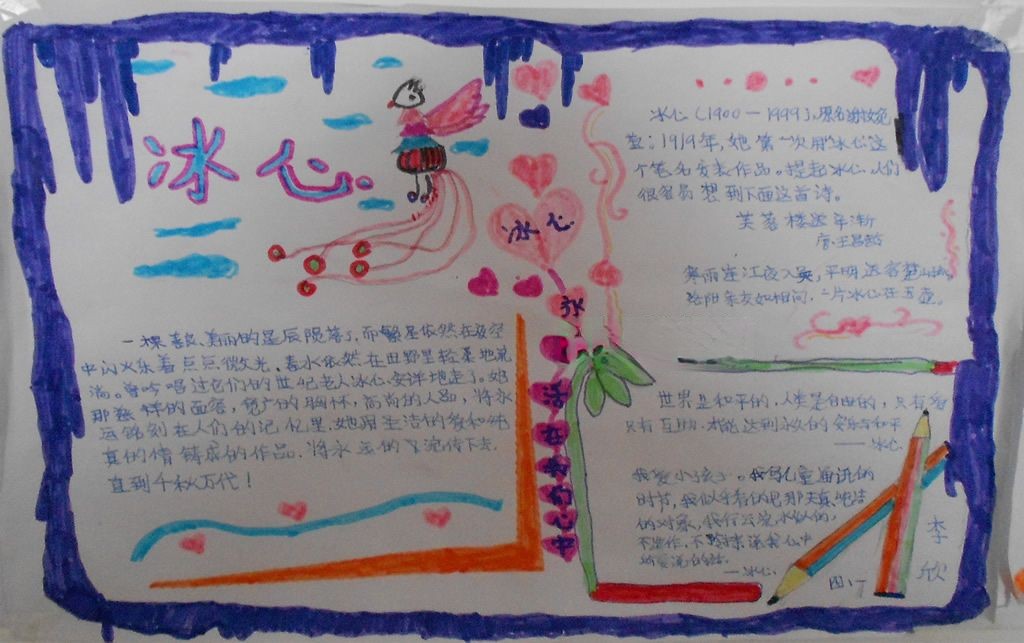 冰心
冰心
一颗
美丽的星辰陨落了,而繁星依然在夜空
中闪烁着点点微光,春水依然在田野里轻柔地流
淌。曾吟唱过它们的世纪老人冰心安详地走了。她
那慈祥的面容,宽广的胸怀,高尚的人品,将永
远铭刻在人们的记忆里。她用圣洁的爱和纯
真的情铸成的作品,将永远的
流传下去,
直到千秋万代!
冰心(1900—1999),原名谢婉莹
1919年,她第一次用“冰心”这
个笔名发表作品。提起冰心,人们
很容易想到下面这首诗。
芙蓉楼送辛渐
唐·王昌龄
寒雨连江夜入吴,平明送客楚山孤。
洛阳亲友如相问,一片冰心在玉壶。
世界是和平的,人类是自由的,只有
只有互助,才能达到永久的安乐与和平
——冰心
我爱小孩子。我写儿童通讯的
时节,我似乎看得见那天真纯洁
的对象,我行云流水似的,
不造作,不矜持,说我心中
所要说的话。
——冰心
四、丁
李
欣